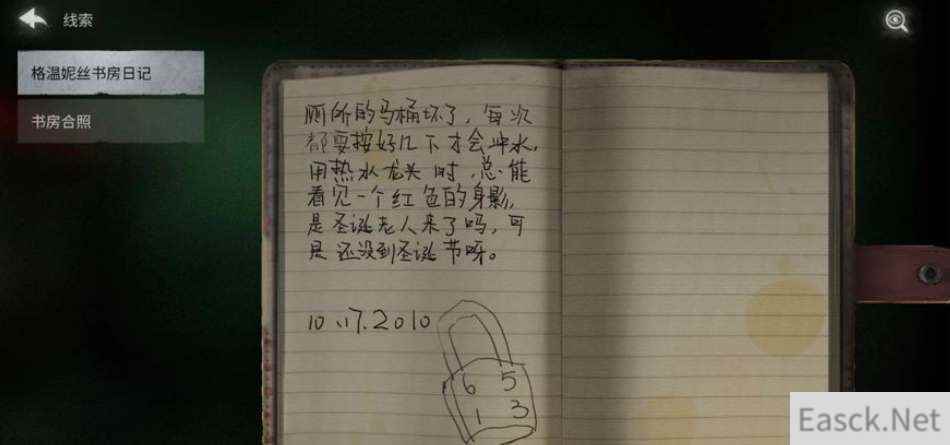 线索
格温妮丝书房日记
书房合照
厕所的马桶坏了，每次
都要按好几下才会冲水，
用热水龙头时，总能
看见一个红色的身影，
是圣诞老人来了吗，可
是还没到圣诞节呀。
10.17.2010
6 5
1 3
Easck.Net